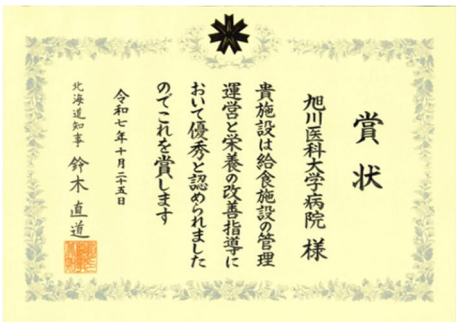 賞状
旭川医科大学病院 様
貴施設は給食施設の管理
運営と栄養の改善指導に
おいて優秀と認められました
のでこれを賞します
令和七年十月二十五日
北海道知事 鈴木直道